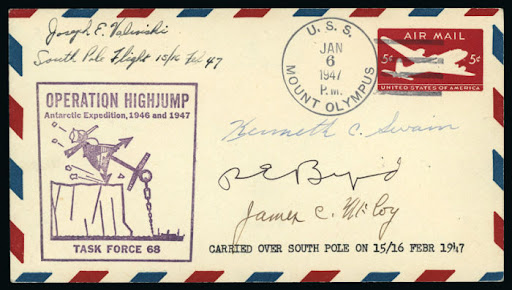 Joseph E. Valinski
South Pole Flight 15/16 Feb 47
U. S. S.
JAN
6
1947
P.M.
MOUNT OLYMPUS
AIR MAIL
5¢ 5¢
UNITED STATES OF AMERICA
OPERATION HIGHJUMP
Antarctic Expedition, 1946 and 1947
TASK FORCE 68
Kenneth C. Swain
R E Byrd
James C. McCoy
CARRIED OVER SOUTH POLE ON 15/16 FEBR 1947